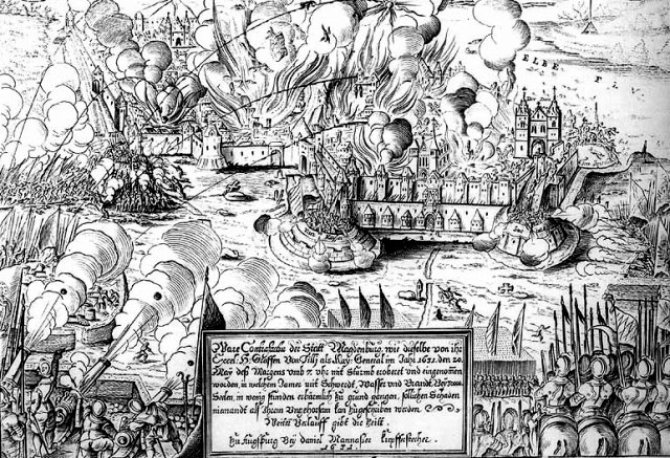 ELBE FL
Ware Contrafactur der Statt Magdenburg, wie dieselbe von ihr
Excel. H: Graffen Von Tilly als Kay: General im Jahr 1631. den 20
May deß Morgens umb 7. uhr mit Sturmb erobert und eingenomen
worden, in welchem Jamer mit Schwerdt, Wasser und Brandt Bey
Seelen, in wenig stunden erbärmlich zu grund gangen, solchen Schaden
niemandt als Ihrem Ungehorsam kan zugeschriben werden.
Weitern Verlauff gibt die Zeitt.
Zu Augspurg Bey Daniel Mannasser Kupfferstecher.
1631.